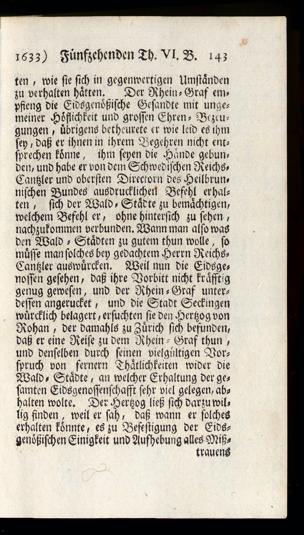 1633) Fünfzehenden Th. VI. B. 143
ten, wie sie sich in gegenwertigen Umständen
zu verhalten hätten. Der Rhein-Graf em-
pfieng die Eidsgenößische Gesandte mit unge-
meiner Höflichkeit und grossen Ehren-Bezeu-
gungen, übrigens betheurete er wie leid es ihm
sey, daß er ihnen in ihrem Begehren nicht ent-
sprechen könne, ihm seyen die Hände gebun-
den, und habe er von dem Schwedischen Reichs-
Cantzler und obersten Directorn des Heilbrun-
nischen Bundes ausdrucklichen Befehl erhal-
ten, sich der Wald-Städte zu bemächtigen,
welchem Befehl er, ohne hintersich zu sehen,
nachzukommen verbunden. Wann man also was
den Wald-Städten zu gutem thun wolle, so
müsse man solches bey gedachtem Herrn Reichs-
Cantzler auswürcken. Weil nun die Eidsge-
nossen gesehen, daß ihre Vorbitt nicht kräfftig
genug gewesen, und der Rhein-Graf unter-
dessen angerucket, und die Stadt Seckingen
würcklich belagert, ersuchten sie den Hertzog von
Rohan, der damahls zu Zürich sich befunden,
daß er eine Reise zu dem Rhein-Graf thun,
und denselben durch seinen vielgültigen Vor-
spruch von fernern Thätlichkeiten wider die
Wald-Städte, an welcher Erhaltung der ge-
samten Eidsgenossenschafft sehr viel gelegen, ab-
halten wolte. Der Hertzog ließ sich darzu wil-
lig finden, weil er sah, daß wann er solches
erhalten könnte, es zu Befestigung der Eids-
genößischen Einigkeit und Aufhebung alles Miß-
trauens